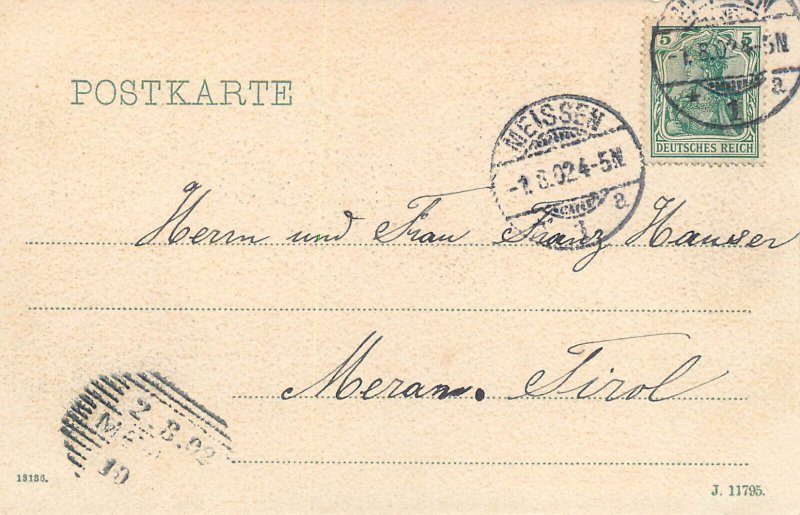 5 5
DEUTSCHES REICH
-1.8.02.4-5N
1 a
POSTKARTE
MEISSEN
-1.8.02.4-5N
1 a
Herrn und Frau Franz Hauser
Meran. Tirol
2.8.02
10
13136.
J. 11795.